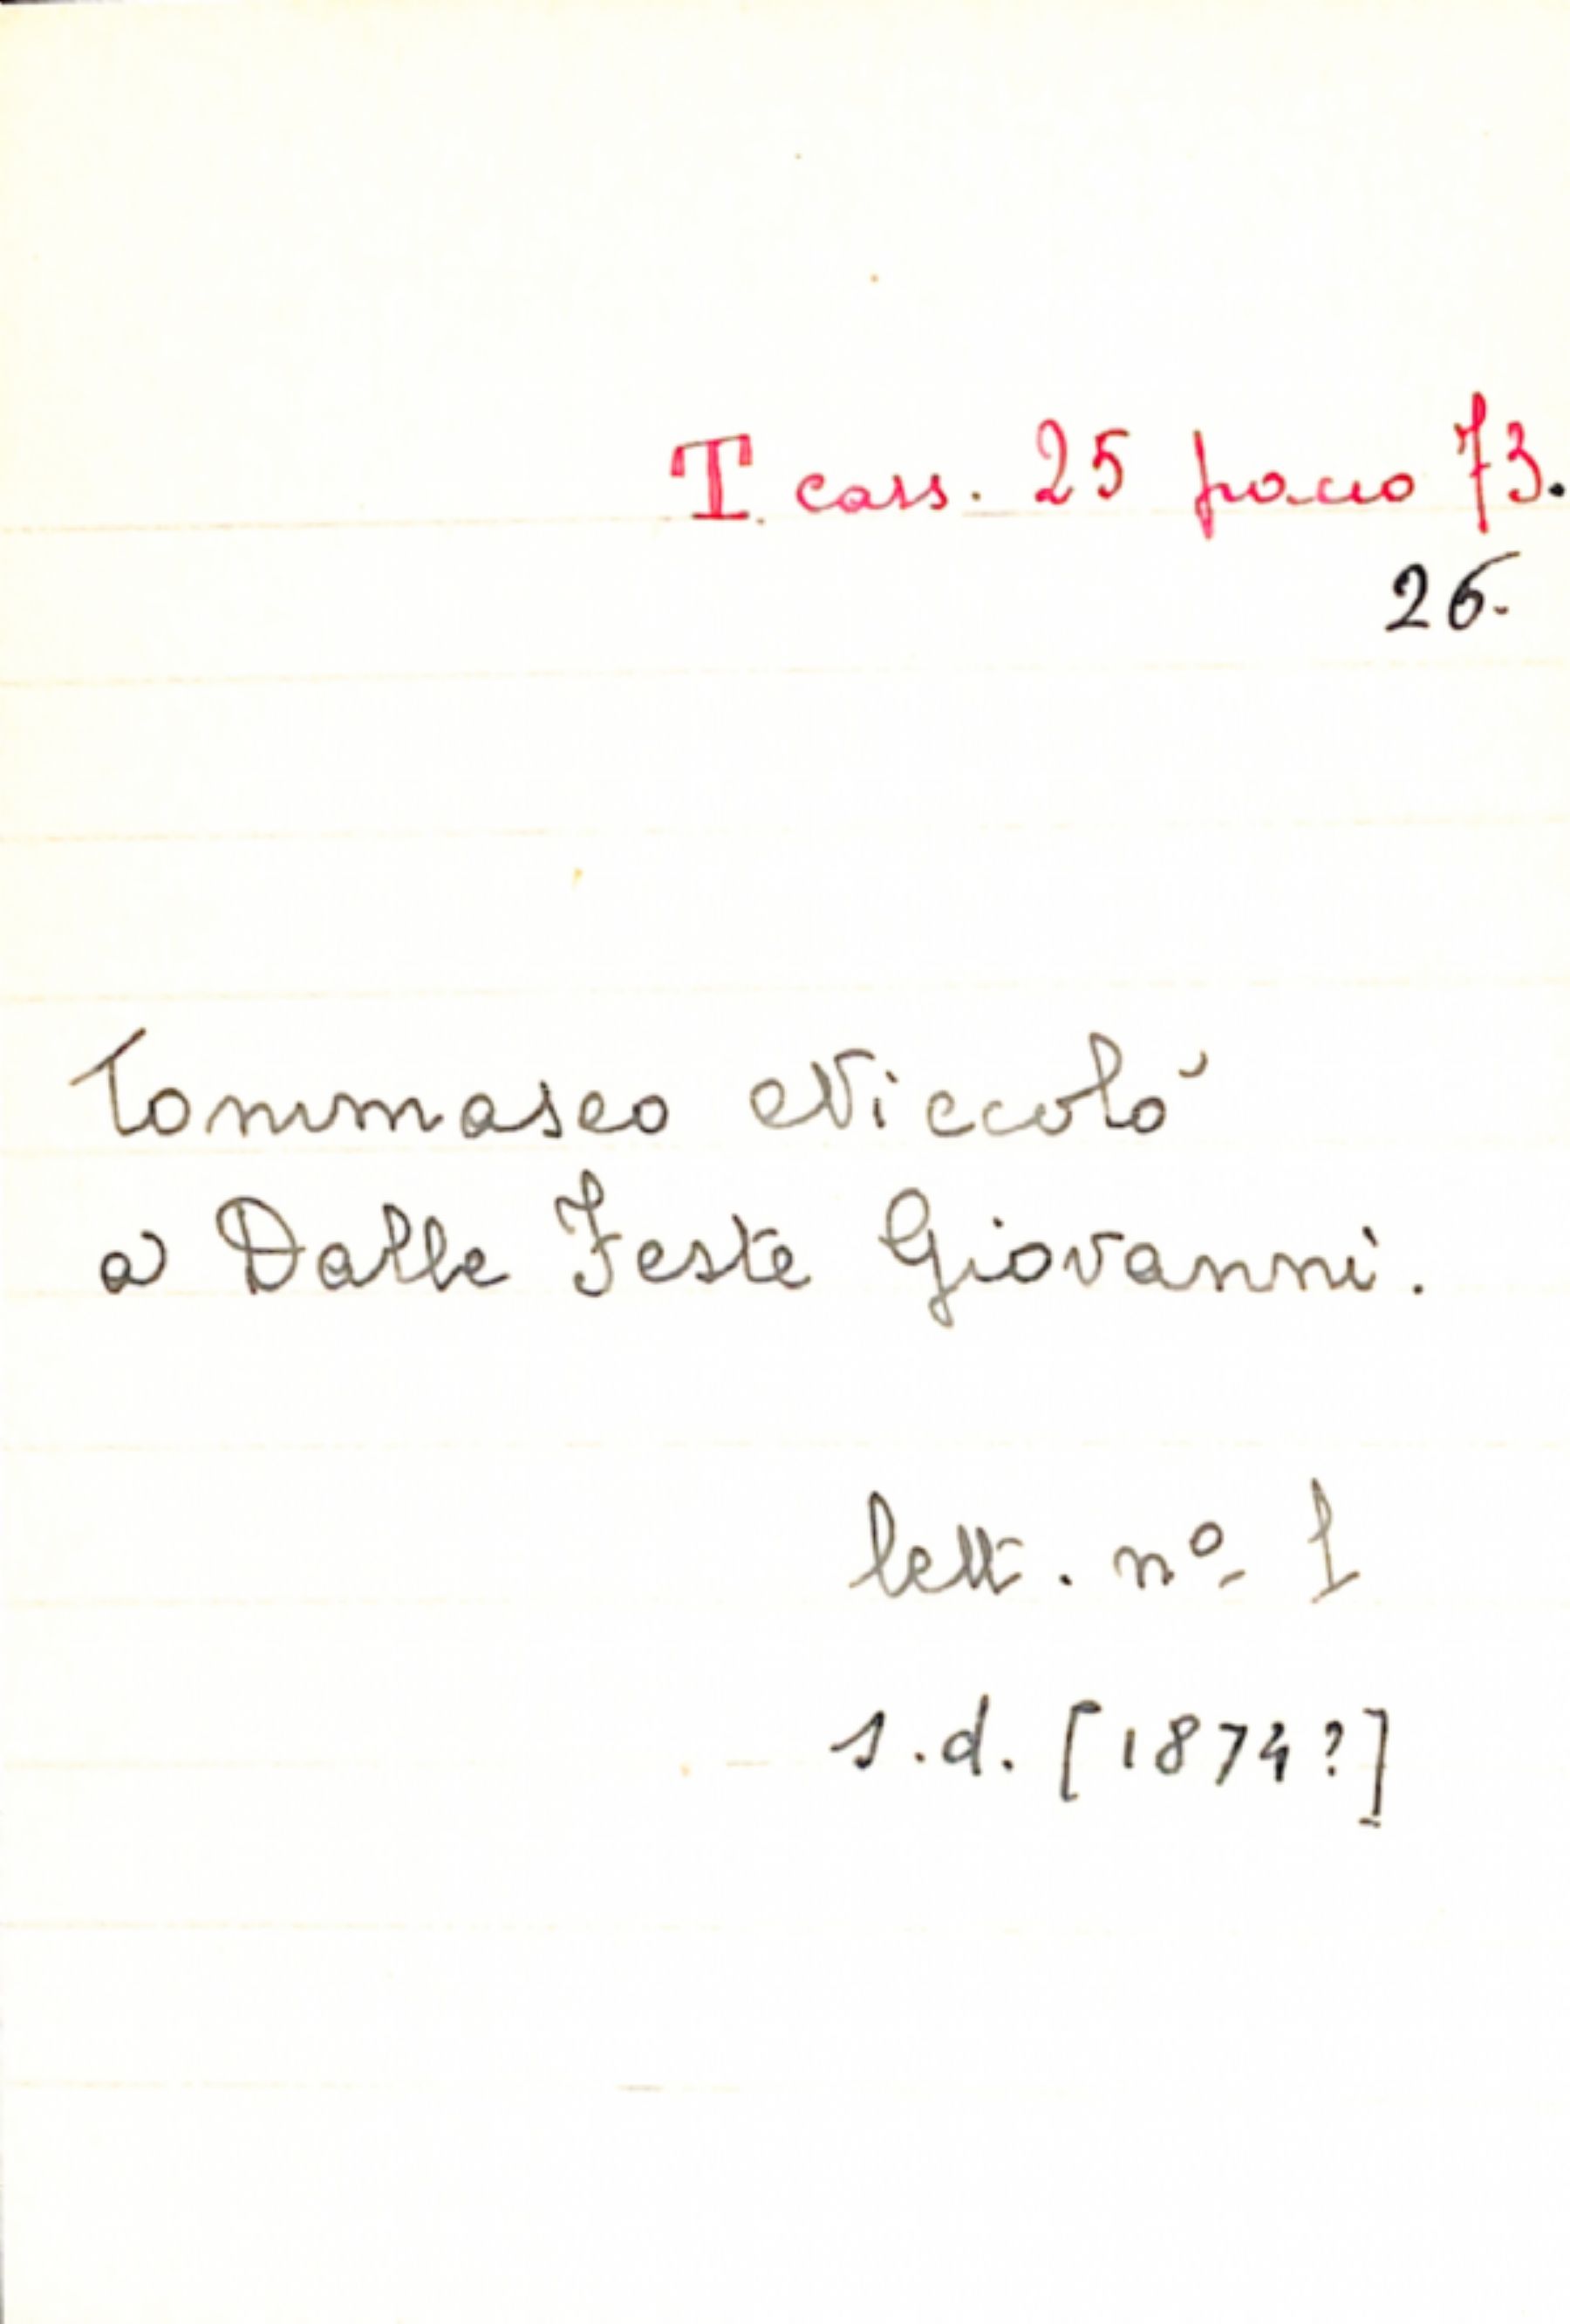 T. cass. 25 pacco 73.
26.
Tommaseo Niccolò
a Dalle Feste Giovanni.
lett. nº 1
s.d. [1874?]